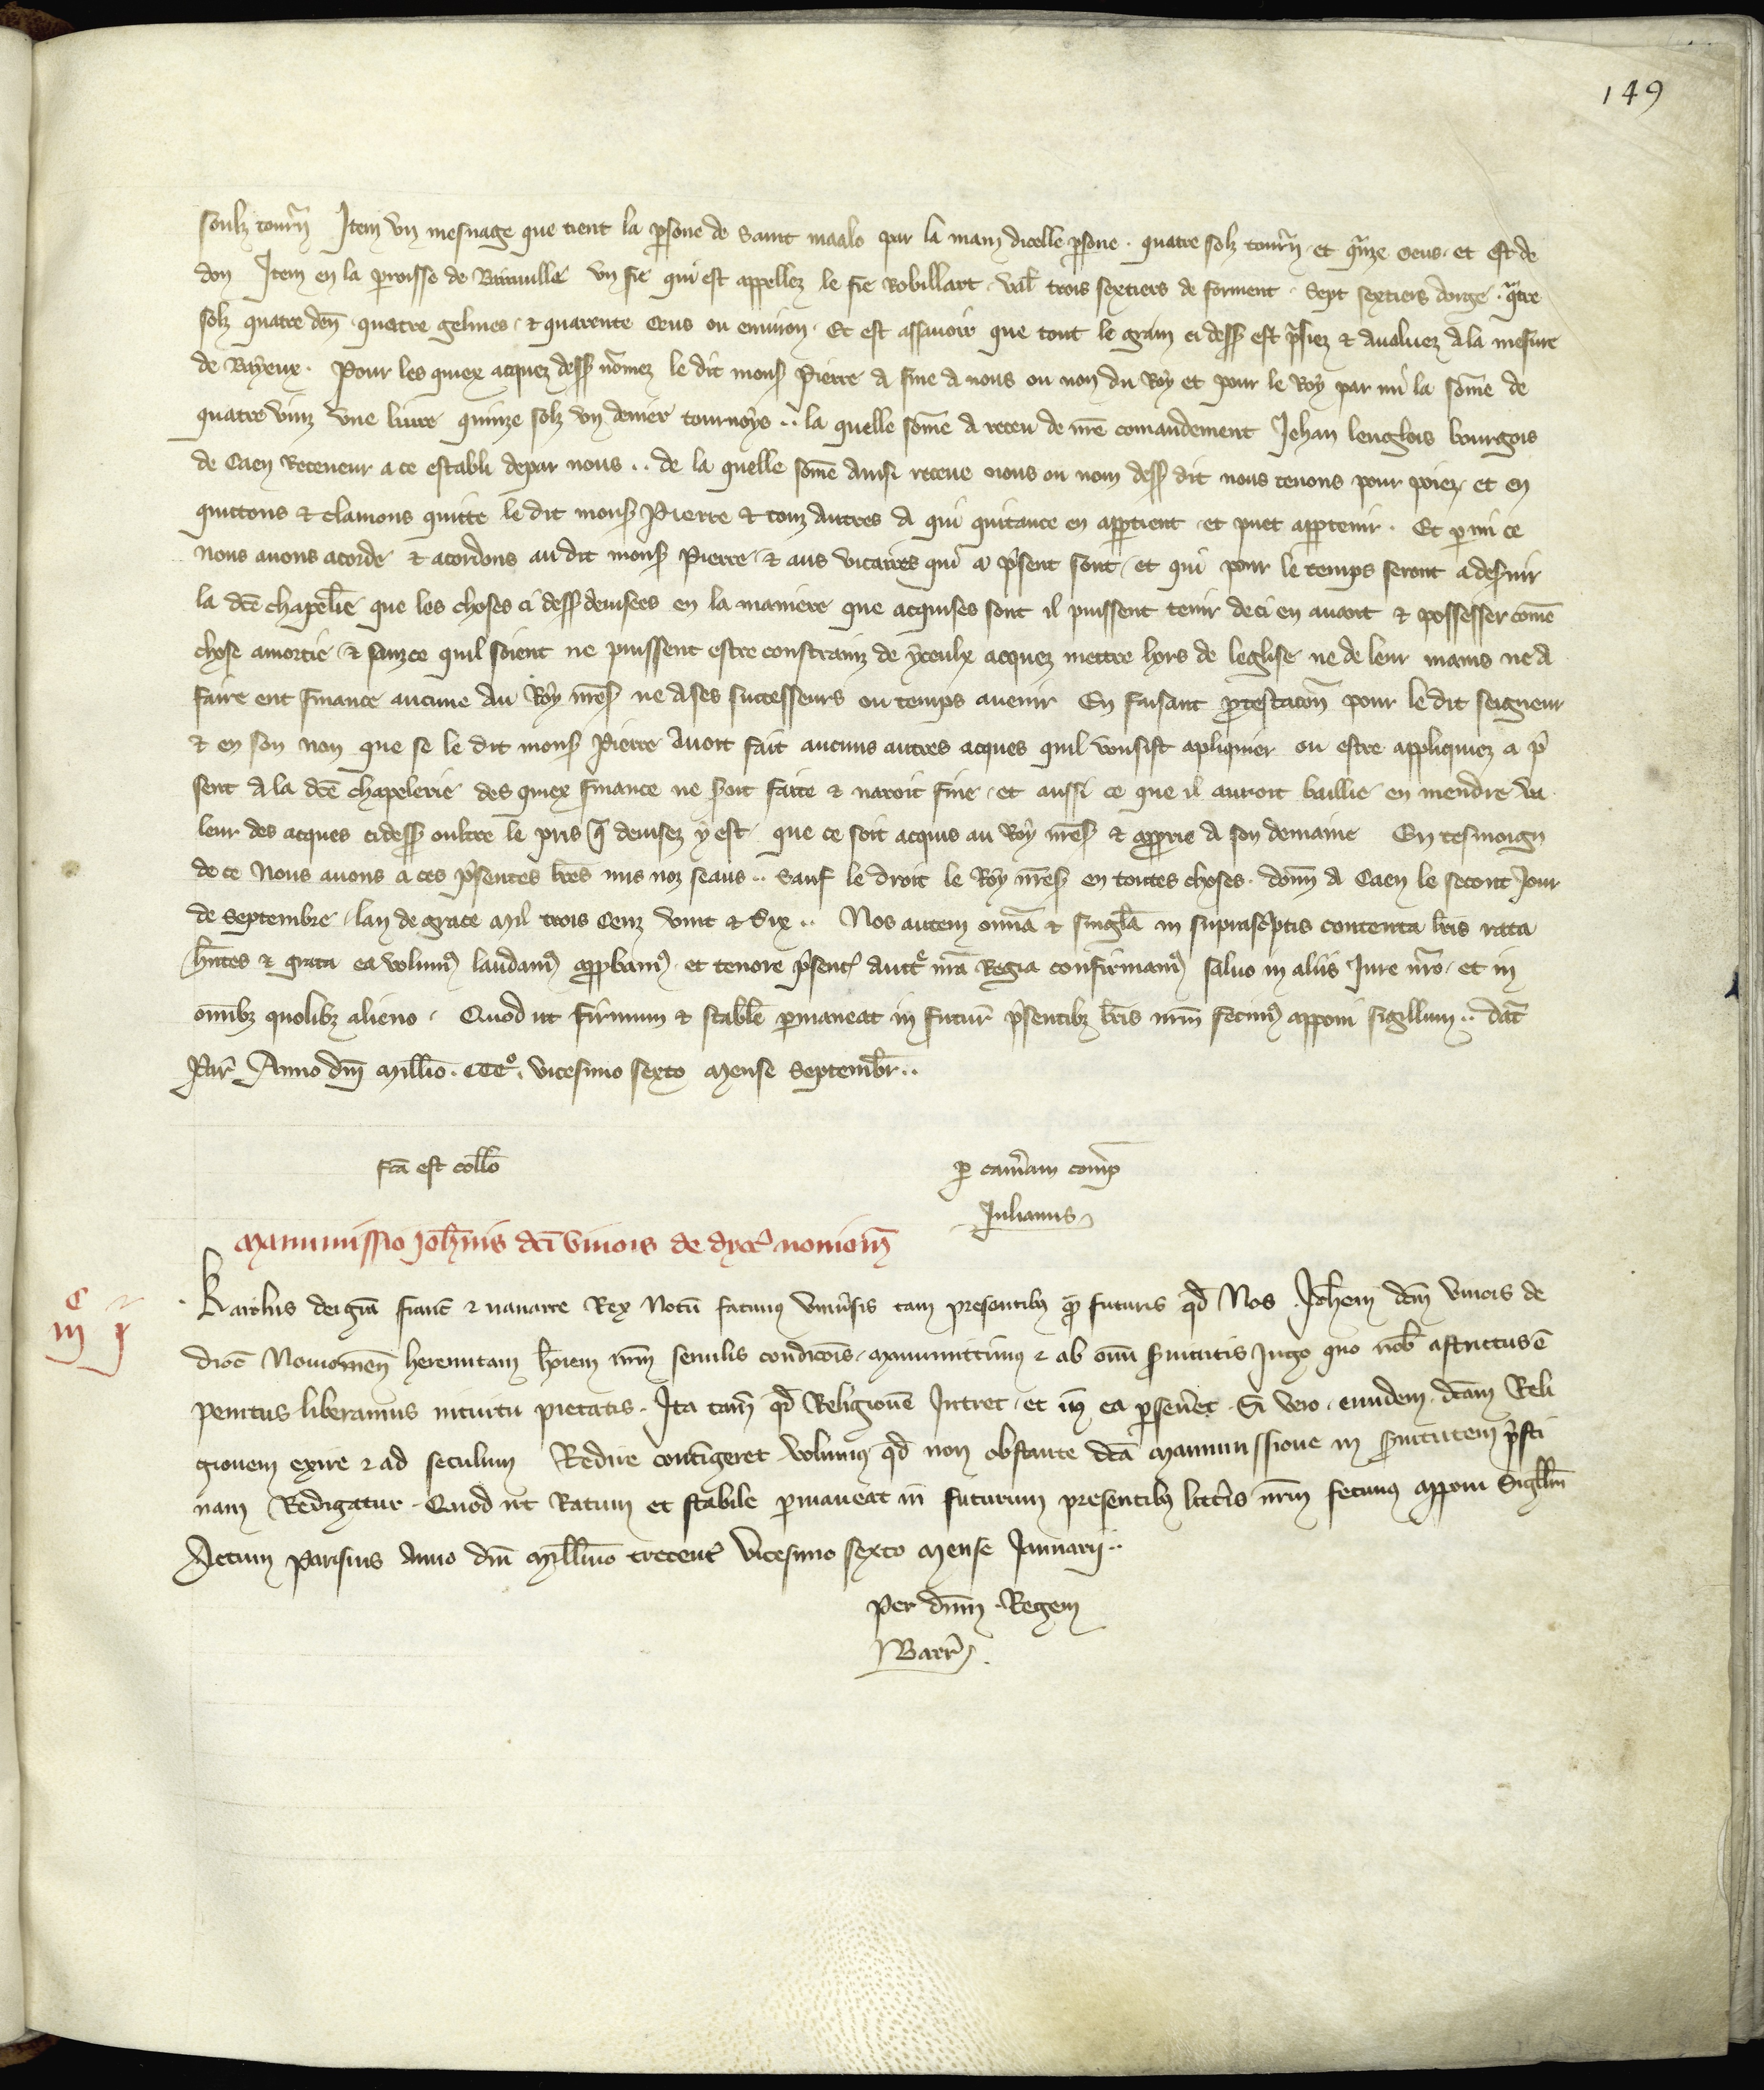 149
soulz tourñ Item vn mesnage que tient la ꝑsone de Saint maalo par la main dicelle ꝑsone . quatre solz tourñ et q̃inze oeus . et est de
don Item en la ꝑroisse de vn fie qui est appellez le fie Robillart . val̃ trois sextiers de forment . Sept sextiers dorge . q̃tre
solz quatre deñ . quatre gelines . ⁊ quarente oeus ou enuiron . Et est assauoir que tout le grain ci dess̃ est p̃siez ⁊ aualuez a la mesure
de Bayeux . Pour les quiex acquez dess̃ nõmez le dit mons̃ Pierre a fine a nous ou non du Roy et pour le Roy par mi la sõme de
quatre vinz vne liure quinze solz vn denier tournoys .. la quelle sõme a receu de nr̃e comandement Jehan lenglois bourgois
de Caen Receueur a ce establi depar nous .. de la quelle sõme ainsi receue nous ou nom dess̃ dit nous tenons pour poiez . et en
quittons ⁊ clamons quitte le dit mons̃ Pierre ⁊ touz autres a qui quitance en apꝑtient et puet apꝑtenir . Et ꝑ mi ce
nous auons acorde ⁊ acordons au dit mons̃ Pierre ⁊ aus vicaires qui a p̃sent sont . et qui pour le temps seront a deseruir
la dc̃e chapel̃ie que les choses ci dess̃ deuisees en la maniere que acquises sont il puissent tenir deci en auant ⁊ possesser cõme
chose amortie ⁊ sanz ce quil soient ne puissent estre constrainz de yceulx acquez mettre hors de leglise ne de leur mains ne a
faire ent finance aucune au Roy nr̃es̃ ne a ses successeurs ou temps auenir En faisant ꝓtestacõn pour le dit seigneur
⁊ en son non que se le dit mons̃ Pierre auoit fait aucuns autres acques quil vousist apliquier ou estre appliquiez a p̃
sent a la dc̃e chapelerie des quiex finance ne seroit faite ⁊ naroit fine . et aussi ce que il auroit baillie en mendre va
leur des acques ci dess̃ oultre le pris q̃ deuisez y est . que ce soit acquis au Roy nr̃es̃ ⁊ apꝓprie a son demaine En tesmoign
de ce Nous auons a ces p̃sentes lr̃es mis noz seaus .. Sauf le droit le Roy nr̃es̃ en toutes choses . doñ a Caen le secont Jour
de Septembre . lan de grace Mil trois Cenz vint ⁊ Six .. Nos autem om̃ia ⁊ singl̃a in suprasc̃ptis contenta lr̃is rata
hñtes ⁊ grata ea volum⁹ laudam⁹ apꝓbam⁹ . et tenore p̃sent̃ auct̃ nr̃a Regia confirmam⁹ saluo in aliis Jure nr̃o . et in
om̃ibꝫ quolibꝫ alieno . Quod ut firmum ⁊ stabl̃e ꝑmaneat in futur̃ p̃sentibꝫ lr̃is nr̃m fecim⁹ apponi sigillum .. dat̃
Par̃ Anno dñi Mill̃io . CCCº . vicesimo sexto Mense Septembr̃ ..
fc̃a est coll̃o
ꝑ cam̃am comꝑ
Julianus
Manumissio Joh̃nis dc̃i vinois de dyoc̃ nouiom̃
Karolus dei gr̃a franc̃ ⁊ nauarre Rex Notũ facimus vniũsis tam presentibꝫ q̃ futuris qd̃ Nos . Joh̃em dc̃m vinois de
dioc̃ Nouiomeñ heremitam hoĩem nr̃m seruilis condic̃ois . Manumittimus ⁊ ab om̃i Seruitutis Jugo quo nob̃ astrictus ẽ
penitus liberamus intuitu pietatis . Ita tam̃ qd̃ Religionẽ Intret . et in ea ꝑseũet . Si vero . eundem . dc̃am Reli
gionem exire ⁊ ad seculum Redire contĩgeret volumus qd̃ non obstante dc̃a Manumissione in Seruitutem p̃sti
nam Redigatur . Quod ut Ratum et stabile ꝑmaneat in futurum presentibꝫ litt̃is nr̃m fecimus apponi Sigill̃m
Actum Parisius Anno dñi Mill̃imo trecent̃ vicesimo sexto Mense Januarij ..
Per dñm . Regem
Barr̃ .